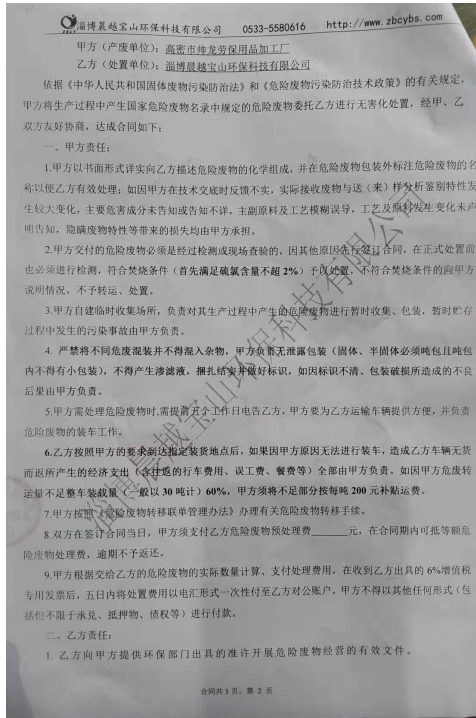 淄博晨越宝山环保科技有限公司 0533-5580616 http://www.zbcybs.com
甲方（产废单位）：高密市帅龙劳保用品加工厂
乙方（处置单位）：淄博晨越宝山环保科技有限公司
依据《中华人民共和国固体废物污染防治法》和《危险废物污染防治技术政策》的有关规定，
甲方将生产过程中产生国家危险废物名录中规定的危险废物委托乙方进行无害化处置，经甲、乙
双方友好协商，达成合同如下：
一、甲方责任：
1.甲方以书面形式详实向乙方描述危险废物的化学组成，并在危险废物包装外标注危险废物的名
称以便乙方有效处理；如因甲方在技术交底时反馈不实，实际接收废物与送（来）样分析鉴别特性发
生较大变化，主要危害成分未告知或告知不详，主副原料及工艺模糊误导，工艺及原料发生变化未声
明告知，隐瞒废物特性等带来的损失均由甲方承担。
2.甲方交付的危险废物必须是经过检测或现场查验的，因其他原因先行签订合同，在正式处置前
也必须进行检测，符合焚烧条件（首先满足硫氯含量不超 2%）予以处置，不符合焚烧条件的向甲方
说明情况，不予转运、处置。
3.甲方自建临时收集场所，负责对其生产过程中产生的危险废物进行暂时收集、包装，暂时贮存
过程中发生的污染事故由甲方负责。
4. 严禁将不同危废混装并不得混入杂物，甲方负责无泄露包装（固体、半固体必须吨包且吨包
内不得有小包装），不得产生渗滤液，捆扎结实并做好标识，如因标识不清、包装破损所造成的不良
后果由甲方负责。
5.甲方需处理危险废物时,需提前五个工作日电告乙方，甲方要为乙方运输车辆提供方便，并负责
危险废物的装车工作。
6.乙方按照甲方的要求到达指定装货地点后，如果因甲方原因无法进行装车，造成乙方车辆无货
而返所产生的经济支出（含往返的行车费用、误工费、餐费等）全部由甲方负责。如因甲方危废转
运量不足整车装载量（一般以 30 吨计）60%，甲方须将不足部分按每吨 200 元补贴运费。
7.甲方按照《危险废物转移联单管理办法》办理有关危险废物转移手续。
8.双方在签订合同当日，甲方须支付乙方危险废物预处理费______元，在合同期内可抵等额危
险废物处理费，逾期不予返还。
9.甲方根据交给乙方的危险废物的实际数量计算、支付处理费用，在收到乙方出具的 6%增值税
专用发票后，五日内将处置费用以电汇形式一次性付至乙方对公账户，甲方不得以其他任何形式（包
括但不限于承兑、抵押物、债权等）进行付款。
二、乙方责任：
1. 乙方向甲方提供环保部门出具的准许开展危险废物经营的有效文件。
合同共 3 页，第 2 页
淄博晨越宝山环保科技有限公司